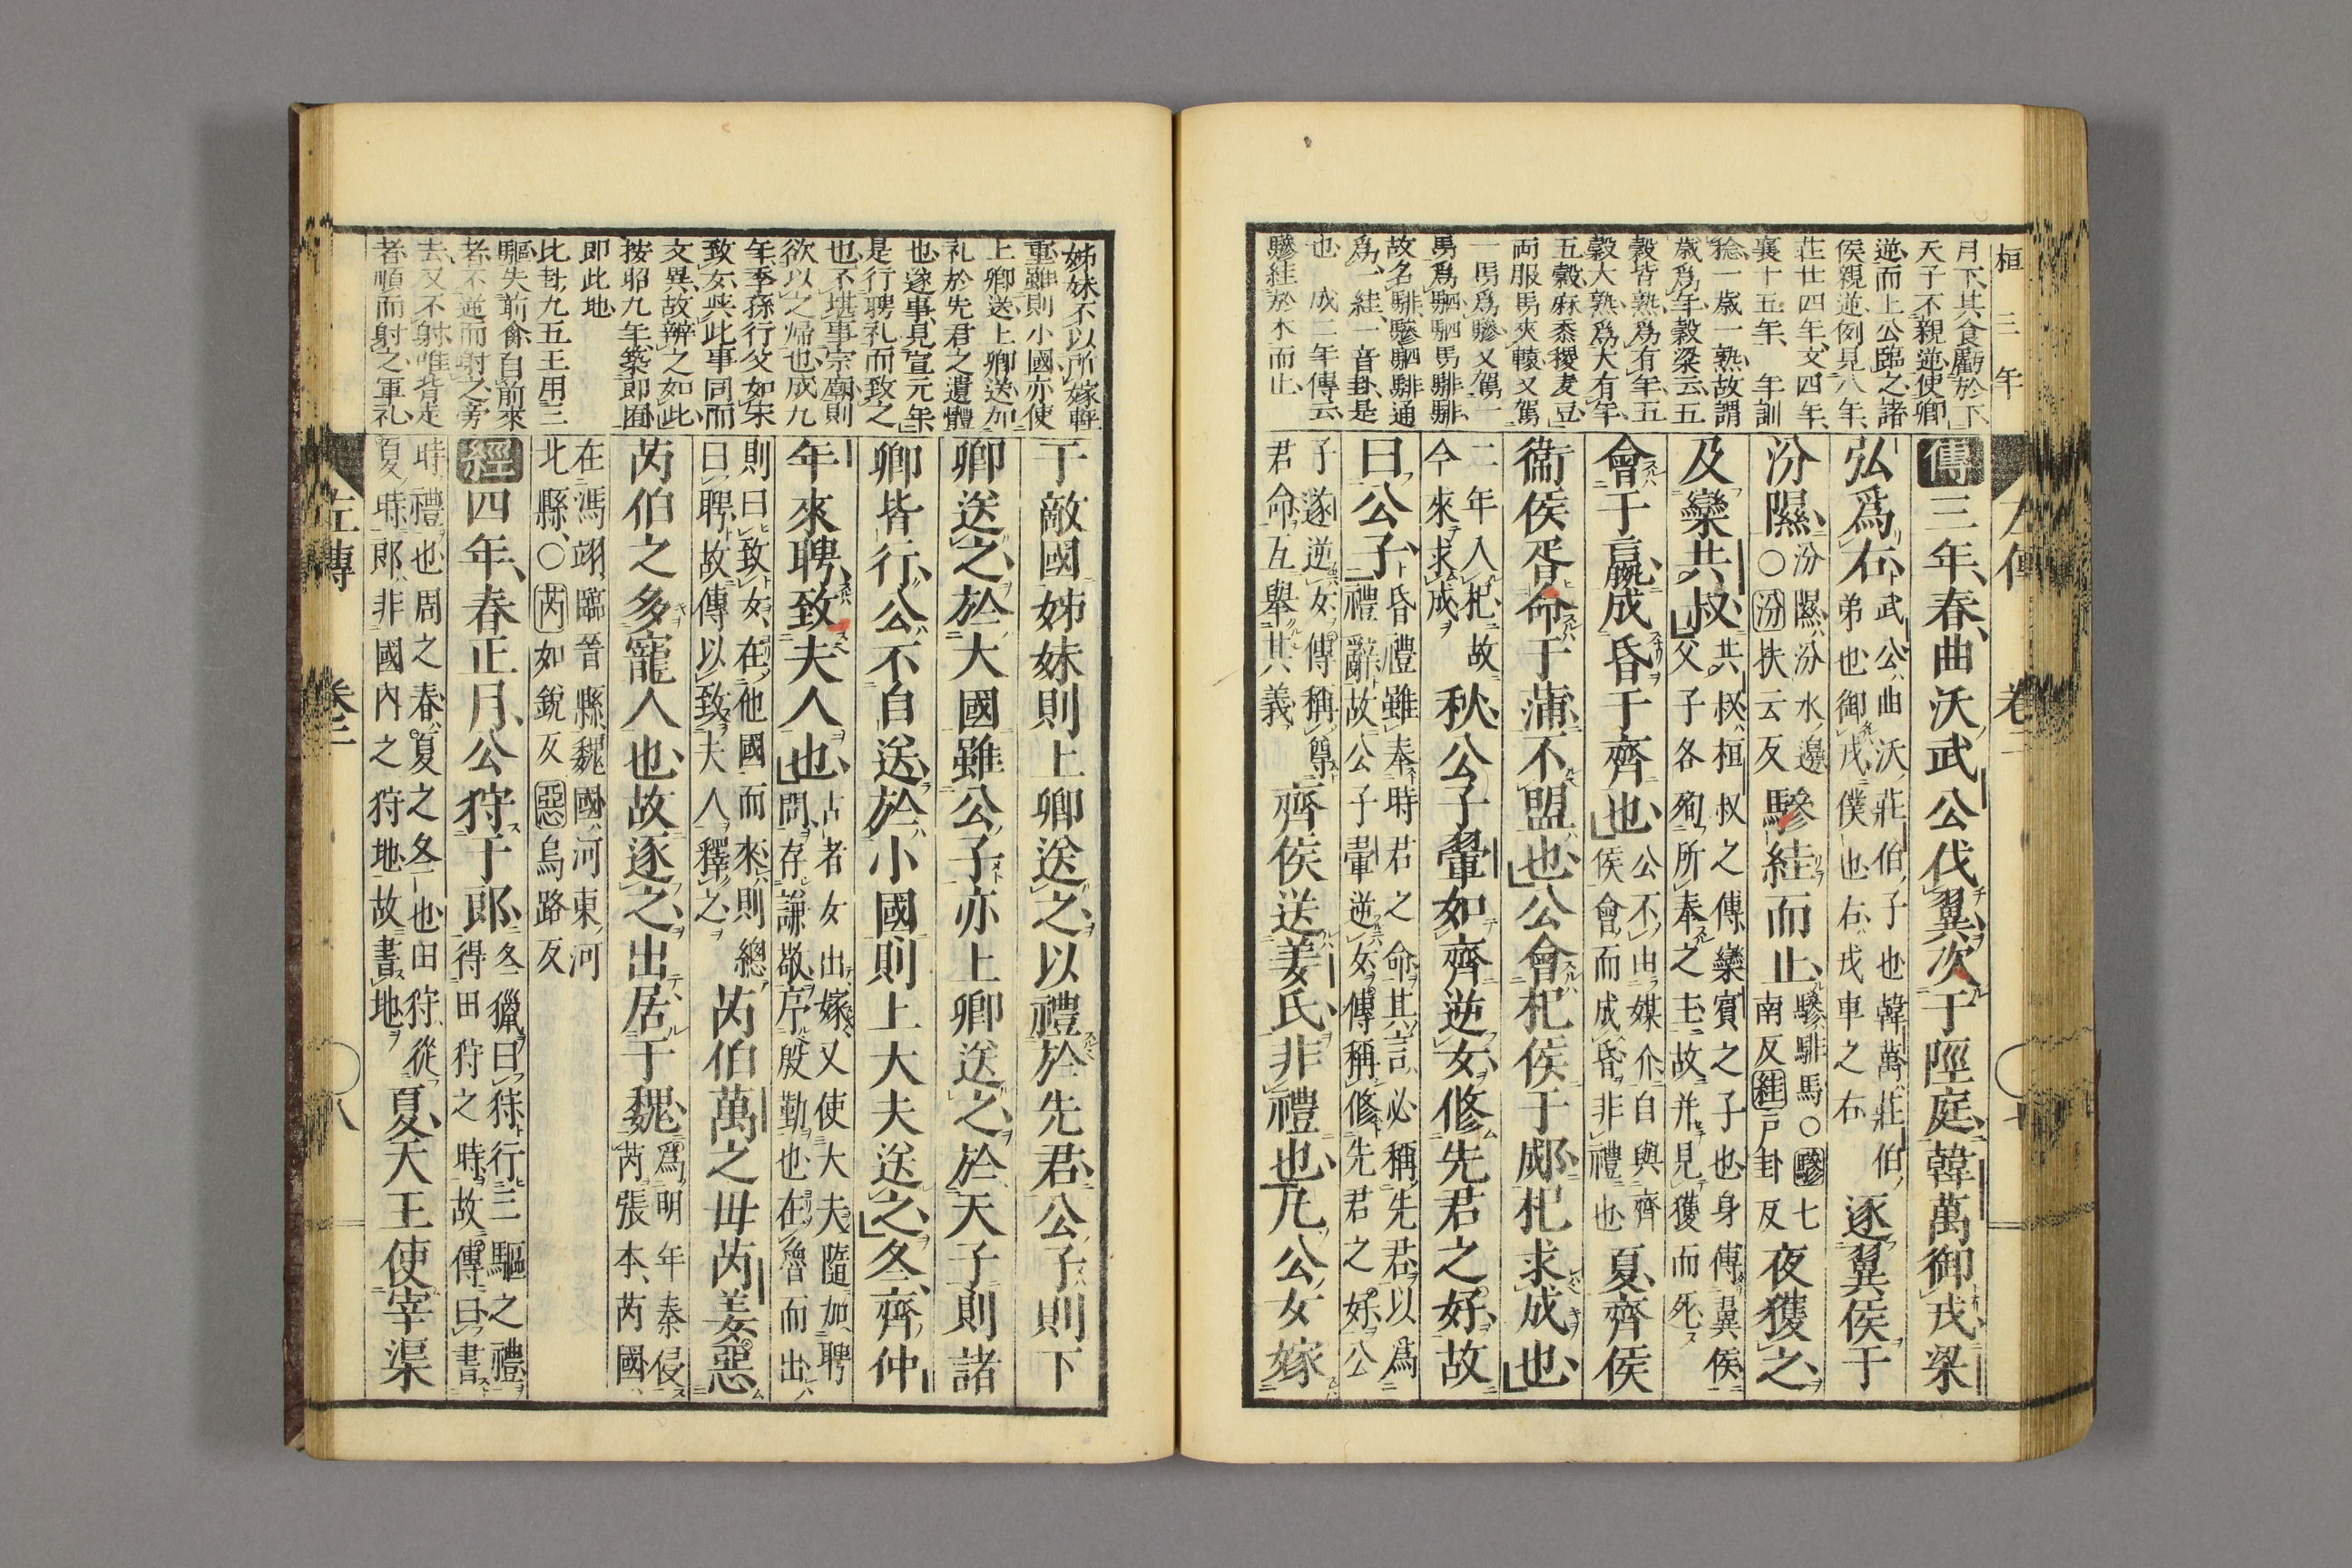 桓三年
月下其食虧於下
天子不親逆使卿
逆而上公臨之諸
侯親逆例見八年
莊廿四年文四年
襄十五年 年訓
稔一歲一熟故謂
歲爲年穀梁云五
穀皆熟爲有年五
穀大熟爲大有年
五穀麻黍稷麦豆
両服馬夾轅又駕
一馬爲驂又駕一
馬爲駟駟馬騑騑
故名騑驂駟騑通
爲一絓一音卦是
也 成二年傳云
驂絓於木而止
傳三年春曲沃武公伐翼次于陘庭韓萬御戎梁
弘爲右武公曲沃莊伯子也韓萬莊伯弟也御戎僕也右戎車之右逐翼侯于
汾隰汾隰汾水邊○汾扶云反驂絓而止驂騑馬○驂七南反絓戸卦反夜獲之
及欒共叔共叔桓叔之傅欒賓之子也身傅翼侯父子各殉所奉之主故并見獲而死
會于嬴成昏于齊也公不由媒介自與齊侯會而成昏非禮也夏齊侯
衞侯胥命于蒲不盟也公會杞侯于郕杞求成也
二年入杞故今來求成秋公子翬如齊逆女修先君之好故
曰公子昏禮雖奉時君之命其言必稱先君以爲禮辭故公子翬逆女傳稱修先君之好公
子遂逆女傳稱尊君命互舉其義齊侯送姜氏非禮也凡公女嫁
左傳 卷二 七
姊妹不以所嫁輕
重雖則小國亦使
上卿送上卿送加
礼於先君之遺體
也遂事見宣元年
是行聘礼而致之
也不堪事宗廟則
欲以之帰也成九
年季孫行父如宋
致女與此事同而
文異故辨之如此
按昭九年築郎囿
即此地
比卦九五王用三
驅失前禽自前來
者不逆而射之旁
去又不射唯背走
者順而射之軍礼
于敵國姊妹則上卿送之以禮於先君公子則下
卿送之於大國雖公子亦上卿送之於天子則諸
卿皆行公不自送於小國則上大夫送之冬齊仲
年來聘致夫人也古者女出嫁又使大夫隨加聘問存謙敬序殷勤也在魯而出
則曰致女在他國而來則總曰聘故傳以致夫人釋之芮伯萬之母芮姜惡
芮伯之多寵人也故逐之出居于魏爲明年秦侵芮張本芮國
在馮翊臨晉縣魏國河東河北縣○芮如銳反惡烏路反
經四年春正月公狩于郎冬獵曰狩行三驅之禮得田狩之時故傳曰書
時禮也周之春夏之冬也田狩從夏時郎非國內之狩地故書地夏天王使宰渠
左傳 卷二 八